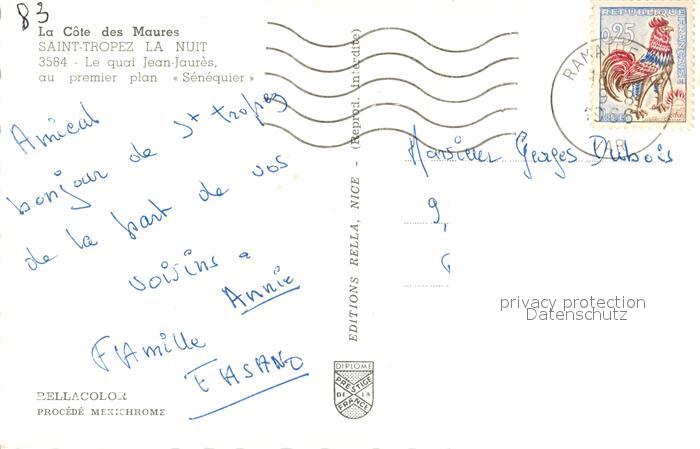 83
La Côte des Maures
SAINT-TROPEZ LA NUIT
3584 - Le quai Jean-Jaurès,
au premier plan « Sénéquier »
Amical
bonjour de St tropez
de la part de vos
voisins
Annie
FAmille
FASANO
RELLACOLOR
PROCÉDÉ MEXICHROME
EDITIONS RELLA, NICE - (Reprod. interdite)
DIPLOME
PRESTIGE
DE LA
FRANCE
REPUBLIQUE FRANÇAISE
0,25
VAR
Monsieur Georges Dubois
9,
privacy protection
Datenschutz